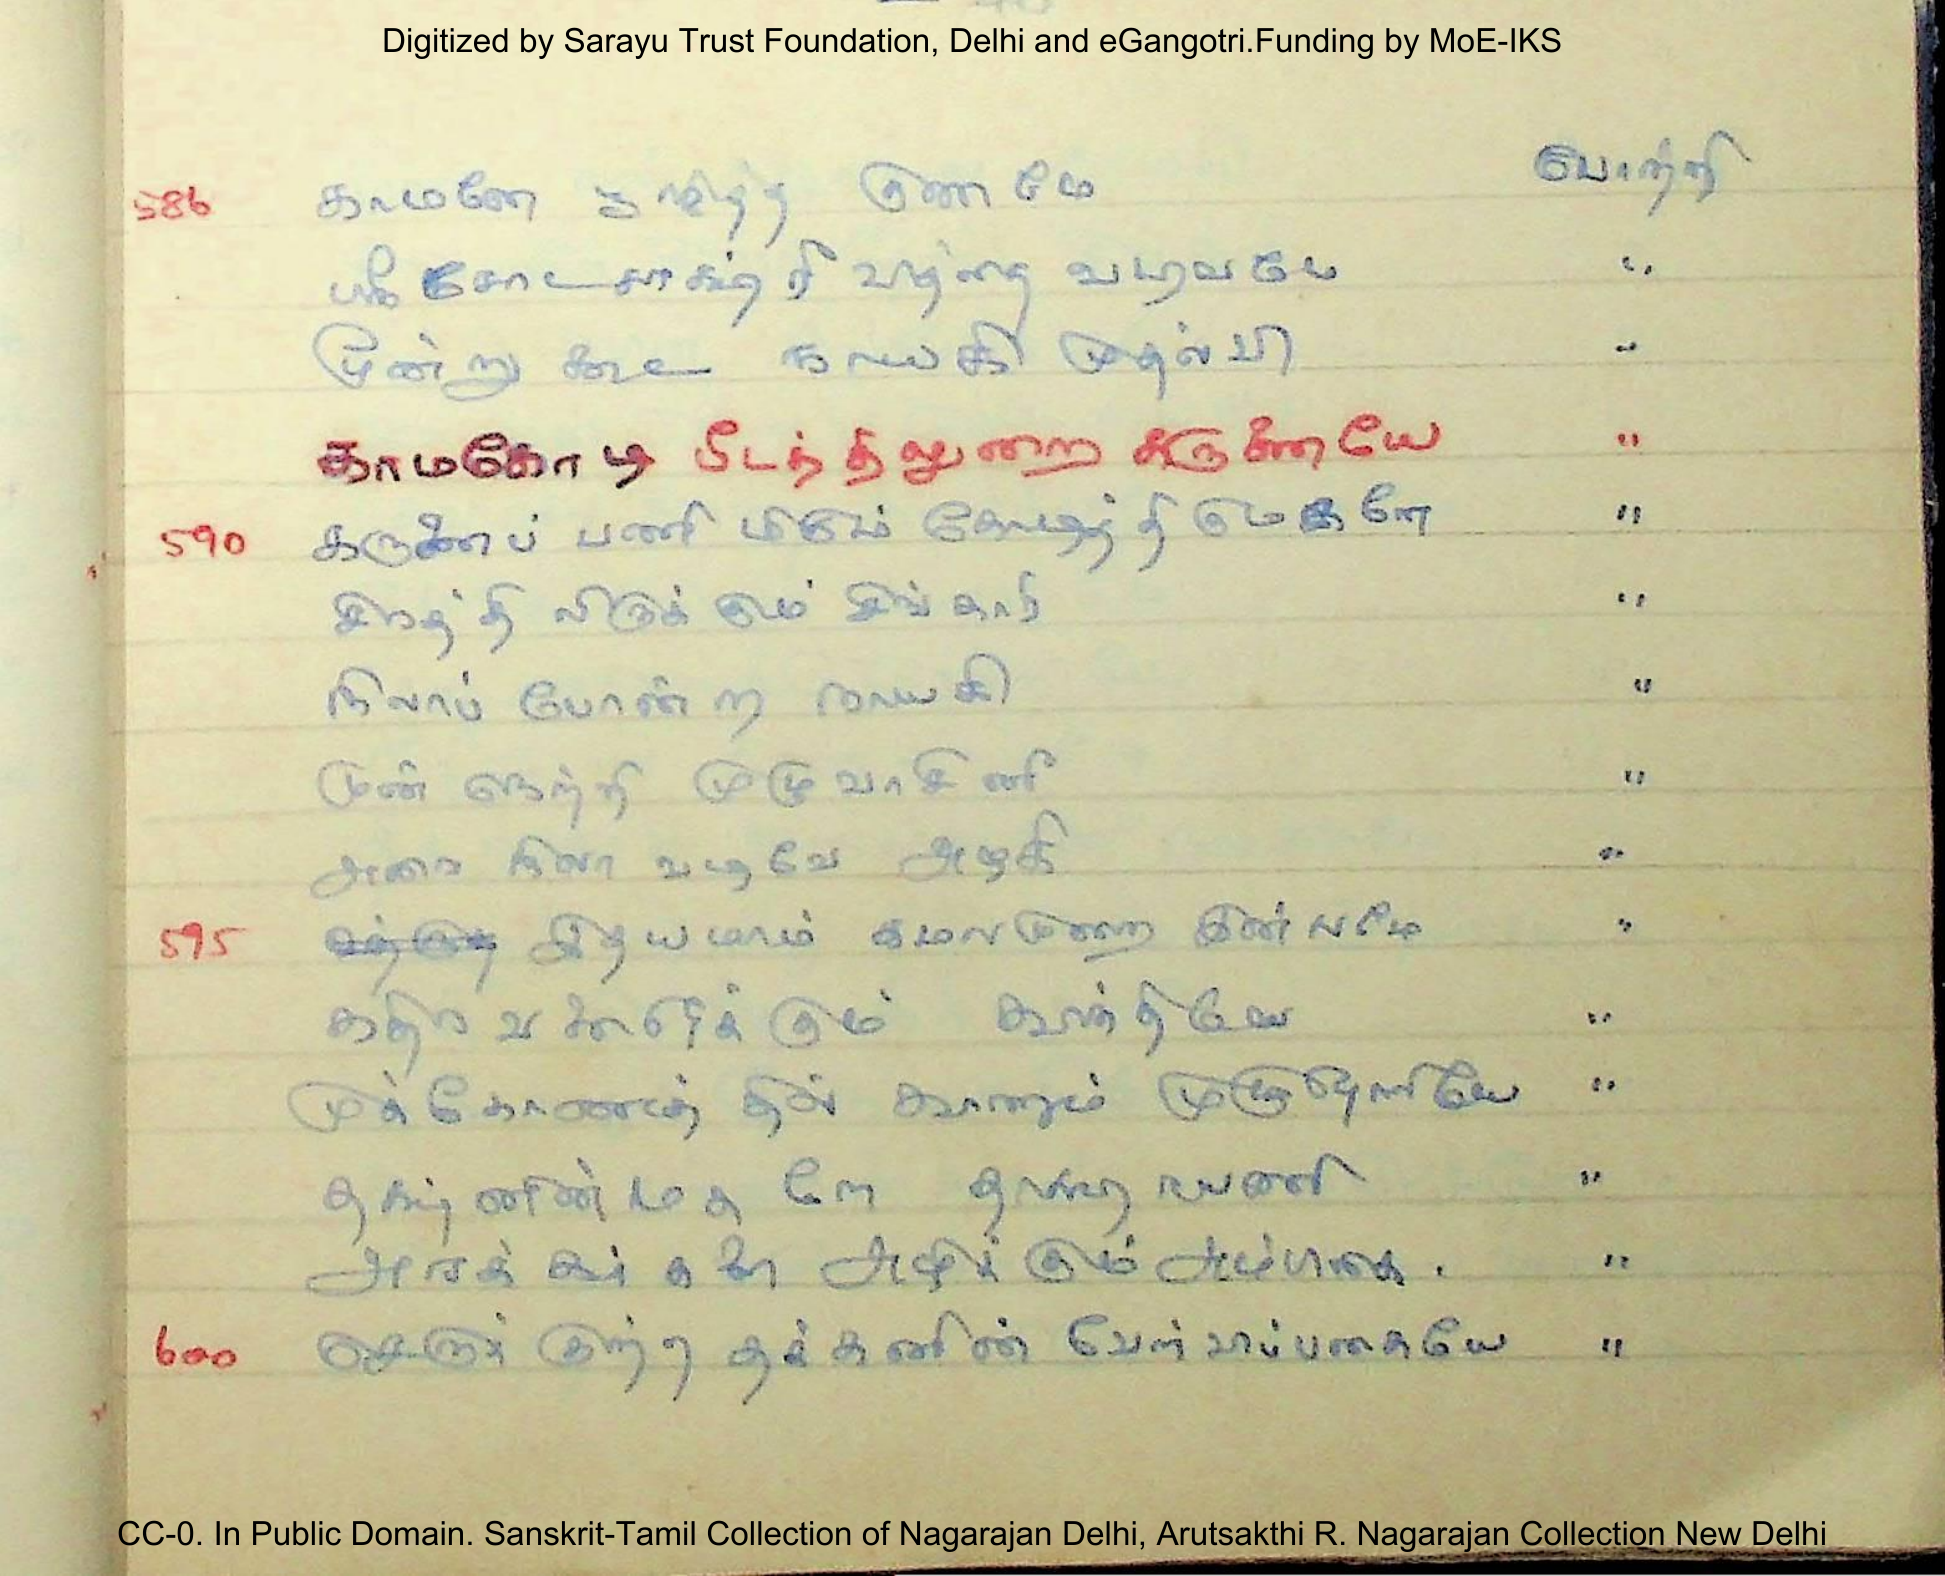 Digitized by Sarayu Trust Foundation, Delhi and eGangotri.Funding by MoE-IKS
586 காமனே குணமே போற்றி
ஸ்ரீ சோடசாக்ஷரி வித்தை வடிவமே "
மூன்று கூட நாயகி முதல்வி "
காமகோடி பீடத்திலுறை கருணையே "
590 கருணைப் பணி "
சிரத்தி லிருக்கும் சிங்காரி "
நிலாப் போன்ற நாயகி "
முன் நெற்றி முழுவாசினி "
அரை நிலா வடிவே அழகி "
595 இதயமாம் கமலமுறை இன்பமே "
கதிரவனொளிக்கும் காந்தியே "
முக்கோணத்தில் காணும் முழுஜோதியே "
தக்ஷனின் மகளே தாக்ஷாயணி "
அரக்கர்களை அழிக்கும் அம்பிகை . "
600 செருக்குற்ற தக்கனின் வேள்விப்பகையே "
CC-0. In Public Domain. Sanskrit-Tamil Collection of Nagarajan Delhi, Arutsakthi R. Nagarajan Collection New Delhi